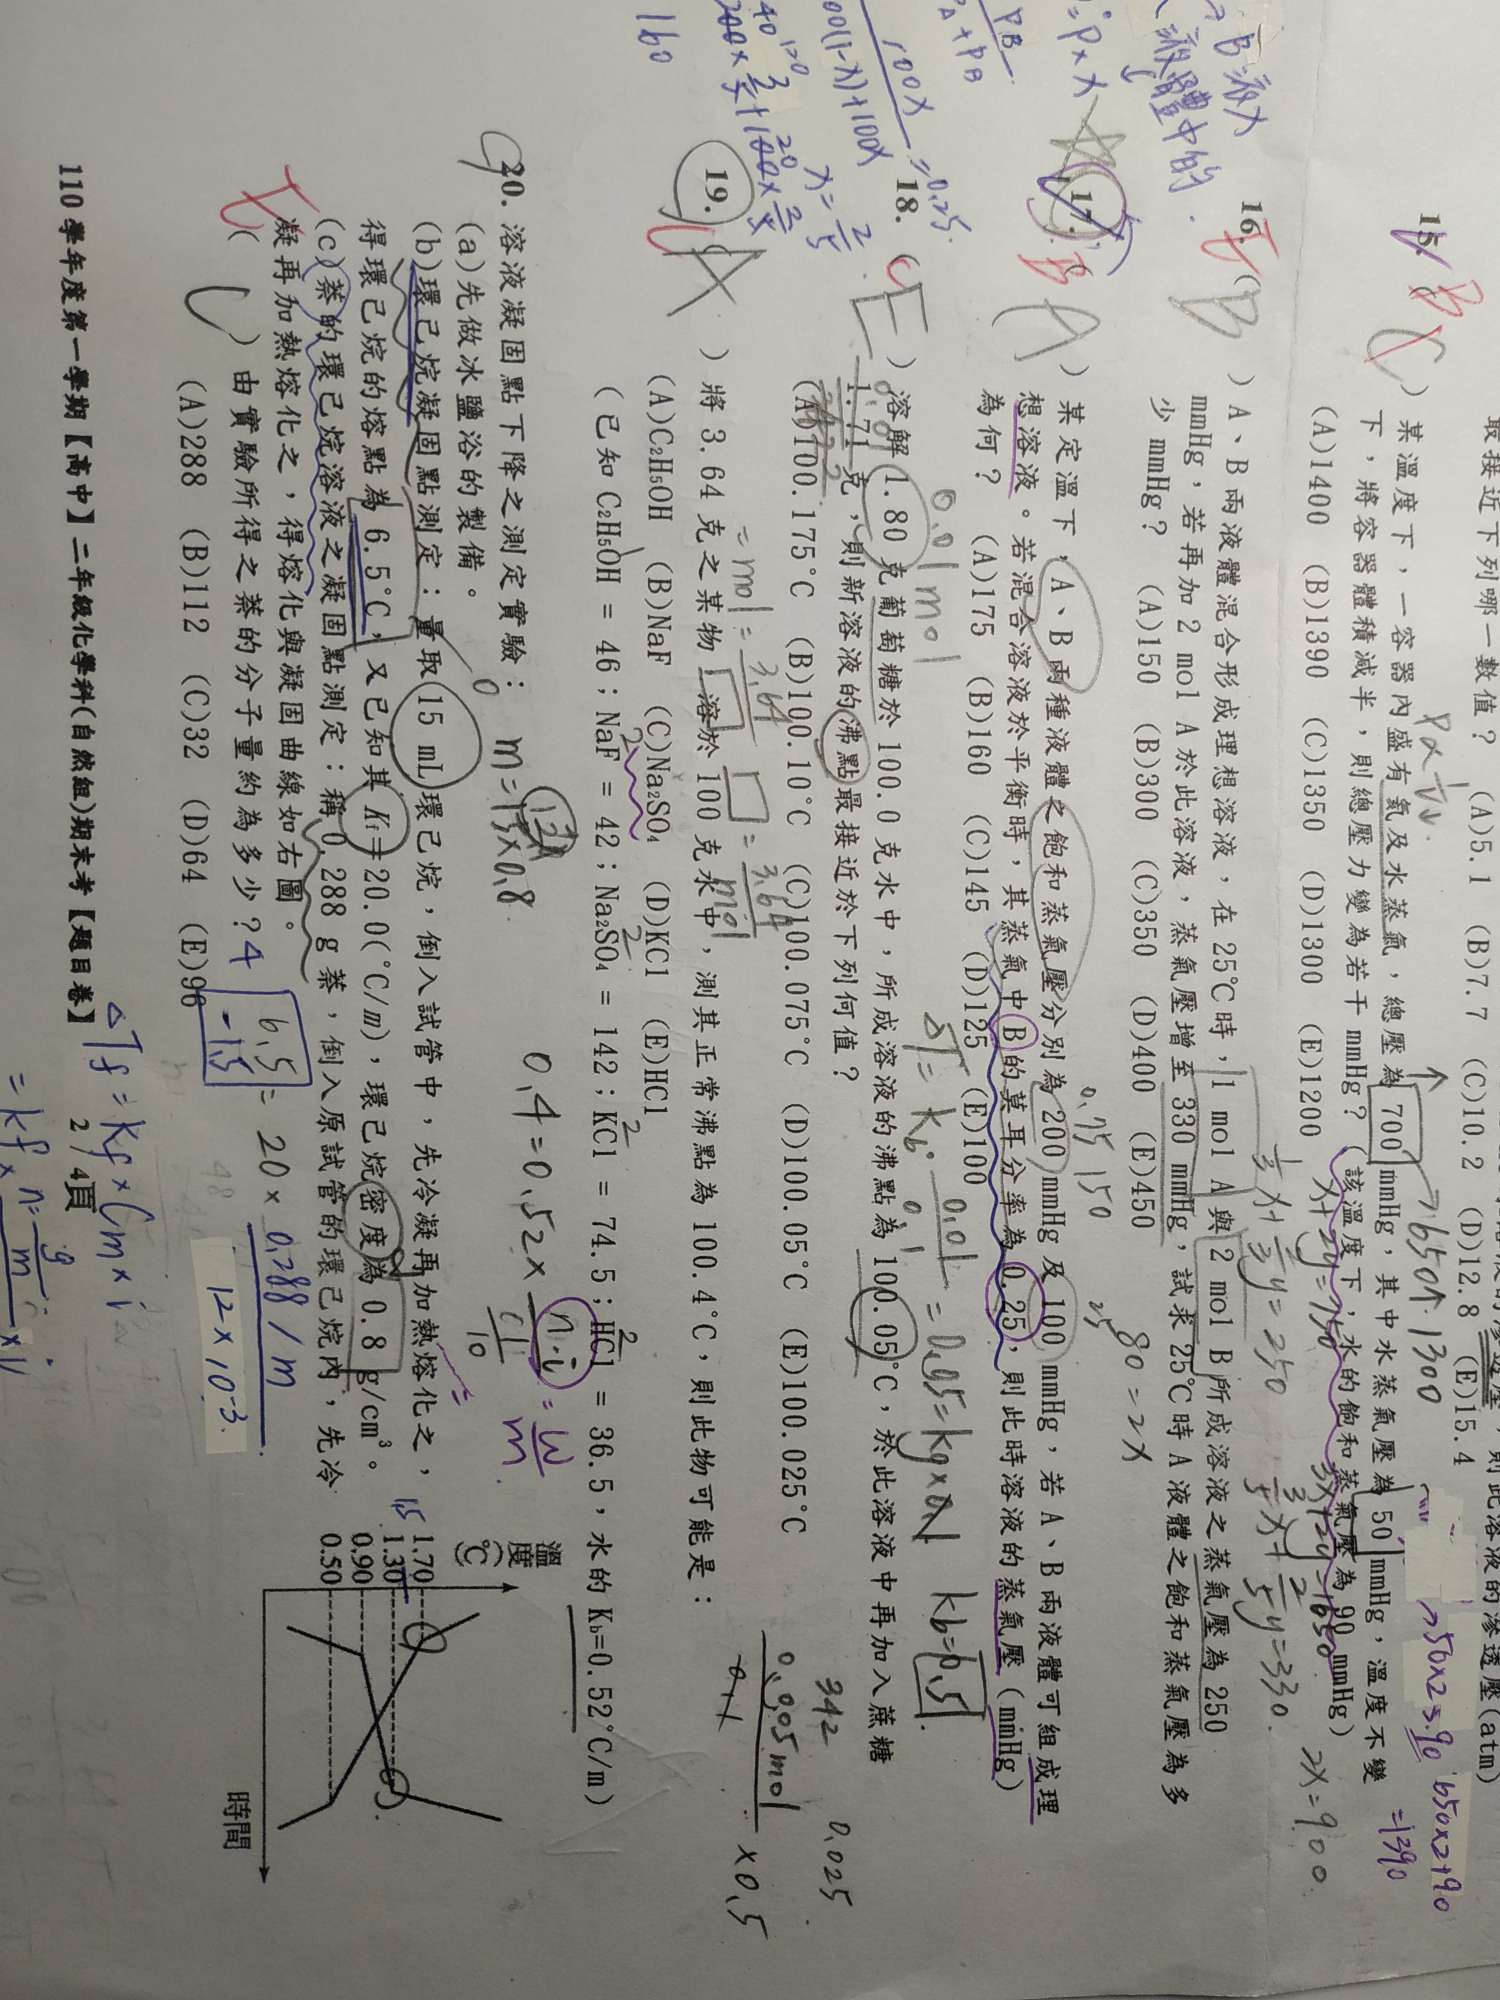 最接近下列哪一數值? (A)5.1 (B)7.7 (C)10.2 (D)12.8 (E)15.4
15. ( B C ) 某溫度下,一容器內盛有氣及水蒸氣,總壓為 700 mmHg,其中水蒸氣壓為 50 mmHg,溫度不變
下,將容器體積減半,則總壓力變為若干 mmHg?(該溫度下,水的飽和蒸氣壓為 90 mmHg)
(A)1400 (B)1390 (C)1350 (D)1300 (E)1200
P∝1/V.
→650↑.1300
→50×2=90
650×2+90
=1390
16. ( B ) A、B 兩液體混合形成理想溶液,在 25℃時,1 mol A 與 2 mol B 所成溶液之蒸氣壓為 250
mmHg,若再加 2 mol A 於此溶液,蒸氣壓增至 330 mmHg,試求 25℃時 A 液體之飽和蒸氣壓為多
少 mmHg? (A)150 (B)300 (C)350 (D)400 (E)450
x+2y=750
3x+2y=1650
1/3x+2/3y=250
3/5x+2/5y=330.
2x=900.
17. ( B A ) 某定溫下,A、B 兩種液體之飽和蒸氣壓分別為 200 mmHg 及 100 mmHg,若 A、B 兩液體可組成理
想溶液。若混合溶液於平衡時,其蒸氣中 B 的莫耳分率為 0.25,則此時溶液的蒸氣壓 (mmHg)
為何? (A)175 (B)160 (C)145 (D)125 (E)100
0.75
150
25
80=2x
100x
=0.25.
x=2/5
160
18. ( C E ) 溶解 1.80 克葡萄糖於 100.0 克水中,所成溶液的沸點為 100.05°C,於此溶液中再加入蔗糖
1.71 克,則新溶液的沸點最接近於下列何值?
(A)100.175°C (B)100.10°C (C)100.075°C (D)100.05°C (E)100.025°C
0.01mol
kb=0.5
342
0.025
0.005mol
×0.5
19. ( A ) 將 3.64 克之某物 溶於 100 克水中,測其正常沸點為 100.4°C,則此物可能是:
(A)C₂H₅OH (B)NaF (C)Na₂SO₄ (D)KCl (E)HCl
(已知 C₂H₅OH = 46;NaF = 42;Na₂SO₄ = 142;KCl = 74.5;HCl = 36.5,水的 K_b=0.52°C/m)
=mol=3.64/□
□=3.64/mol
0.4=0.52×
20. 溶液凝固點下降之測定實驗:
(a)先做冰鹽浴的製備。
(b)環己烷凝固點測定:量取 15 mL 環己烷,倒入試管中,先冷凝再加熱熔化之,
得環己烷的熔點為 6.5°C,又已知其 K_f = 20.0(°C/m),環己烷密度為 0.8 g/cm³。
(c)萘的環己烷溶液之凝固點測定:稱 0.288 g 萘,倒入原試管的環己烷內,先冷
凝再加熱熔化之,得熔化與凝固曲線如右圖。
( C ) 由實驗所得之萘的分子量約為多少?
(A)288 (B)112 (C)32 (D)64 (E)96
m=15×0.8
6.5-1.5=20×0.288/m
12×10⁻³
溫度(℃)
1.70
1.30
0.90
0.50
時間
1.5
ΔTf=kf×Cm×i
110 學年度第一學期【高中】二年級化學科(自然組)期末考【題目卷】 2 / 4頁